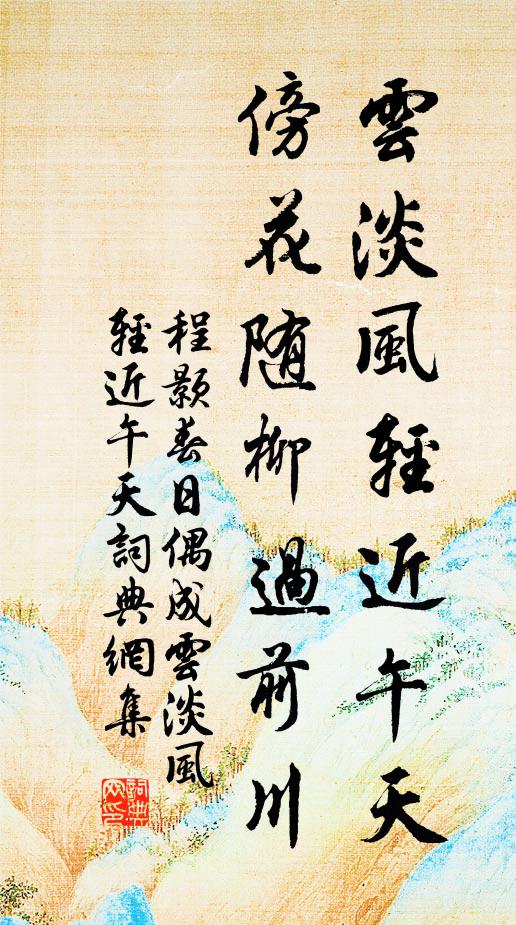 雲淡風輕近午天
傍花随柳過前川
程颢春日偶成雲淡風
輕近午天詞典網集
詞典網印